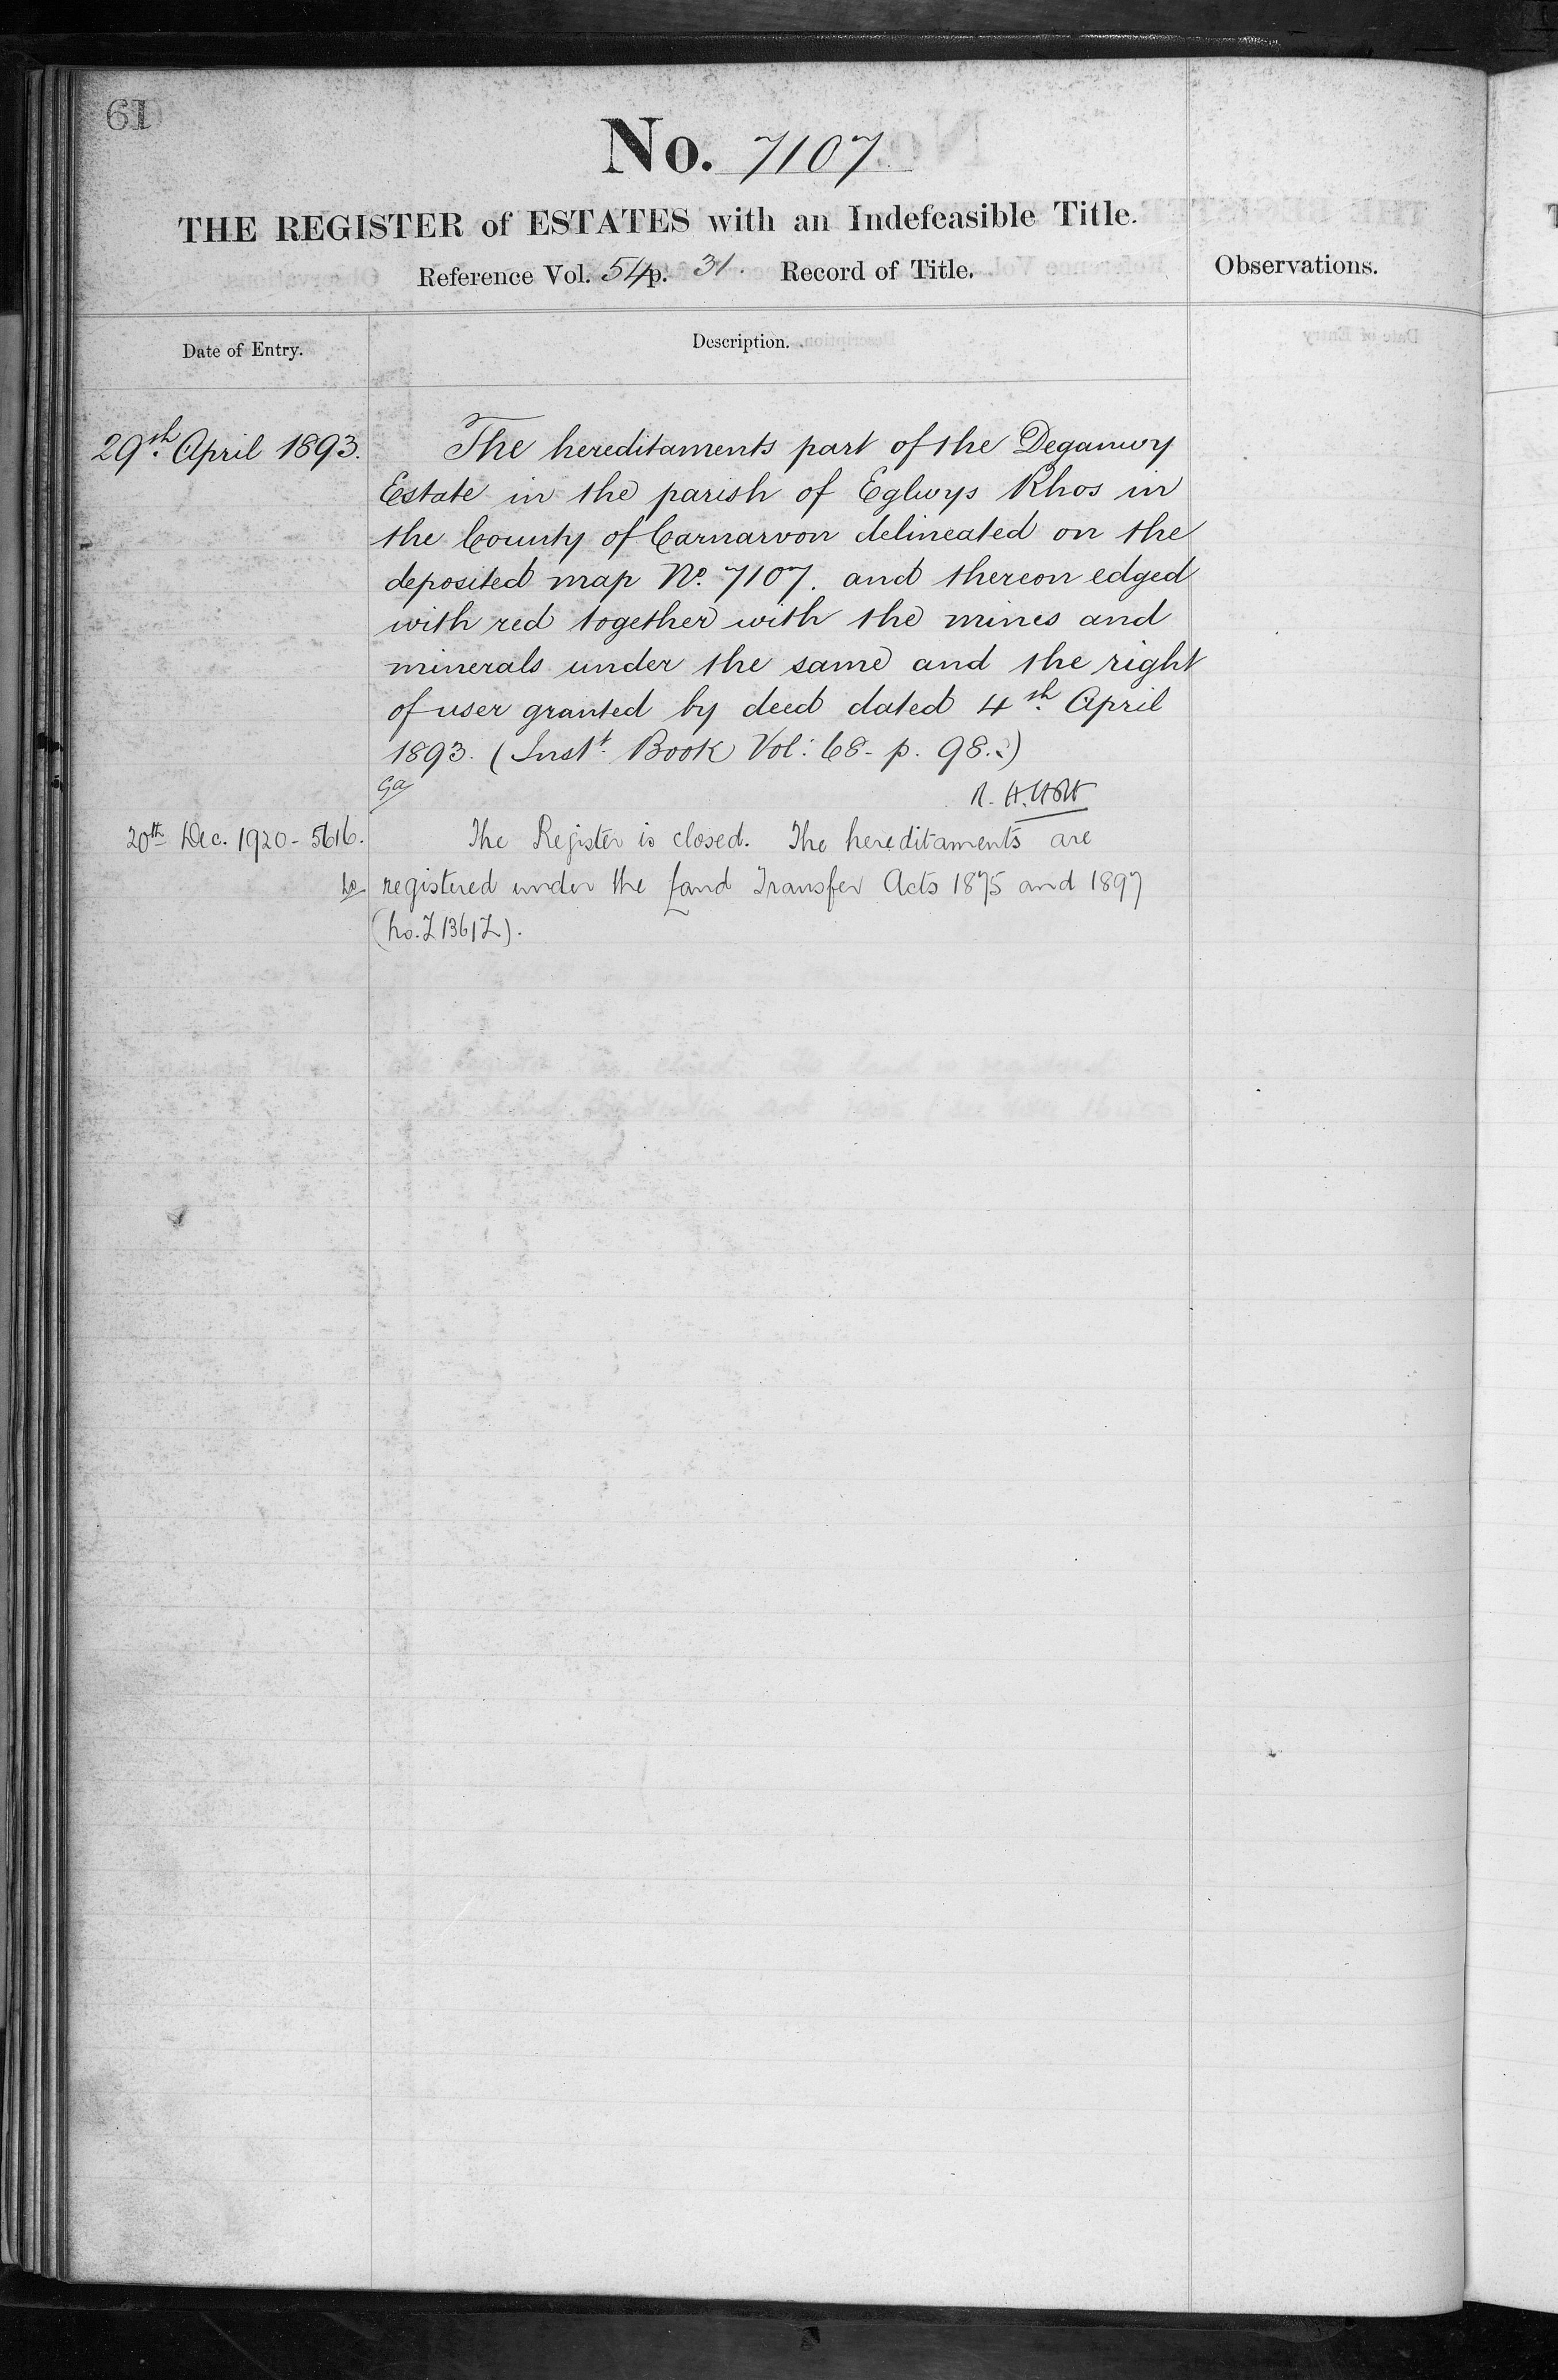 61
No. 7107
THE REGISTER of ESTATES with an Indefeasible Title.
Reference Vol. 54 p. 31. Record of Title.
Observations.
Date of Entry.
Description.
29th April 1893.
The hereditaments part of the Deganwy
Estate in the parish of Eglwys Rhos in
the County of Carnarvon delineated on the
deposited map No. 7107. and thereon edged
with red together with the mines and
minerals under the same and the right
of user granted by deed dated 4th April
1893. (Inst. Book Vol: 68 - p. 98.)
R. H. Holt
20th Dec. 1920 - 5616.
The Register is closed. The hereditaments are
registered under the Land Transfer Acts 1875 and 1897
(No. Z 1361Z).